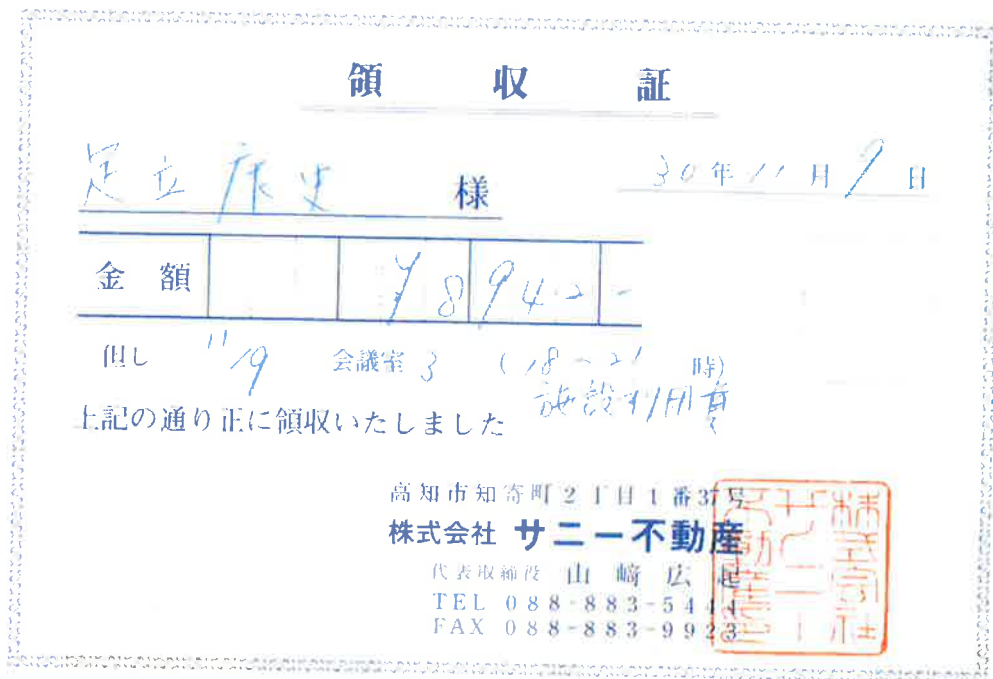 領収証
足立 様
30年11月9日
金額 ¥8942-
但し 11/9 会議室3 (18~21時)
施設利用費
上記の通り正に領収いたしました
高知市知寄町2丁目1番37号
株式会社 サニー不動産
代表取締役 山﨑広起
TEL 088-883-5444
FAX 088-883-9923